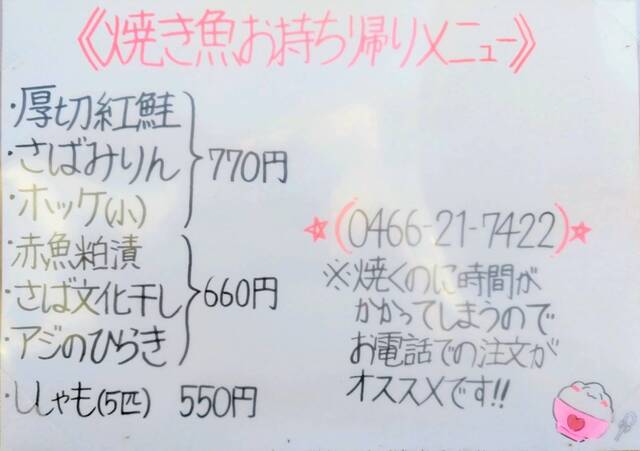 《焼き魚お持ち帰りメニュー》
・厚切紅鮭
・さばみりん
・ホッケ(小)
770円
・赤魚粕漬
・さば文化干し
・アジのひらき
660円
・ししゃも(5匹) 550円
☆(0466-21-7422)☆
※焼くのに時間が
かかってしまうので
お電話での注文が
オススメです!!